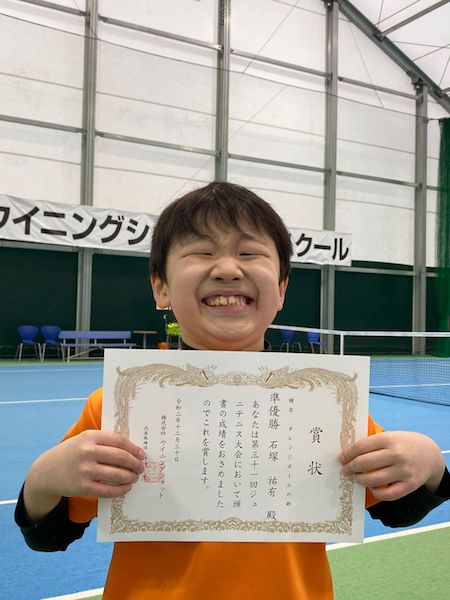 ウイニングシ
クール
賞状
種目 オレンジボールの部
準優勝 石塚 祐有 殿
あなたは第三十一回ジュ
ニテニス大会において頭
書の成績をおさめました
のでこれを賞します。
令和二年十二月三十日
株式会社 ウイニング
ット
代表取締